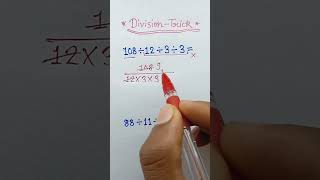 * Division-Trick *
108÷12÷3÷3=
x
108 9
12×3×3
88÷11÷